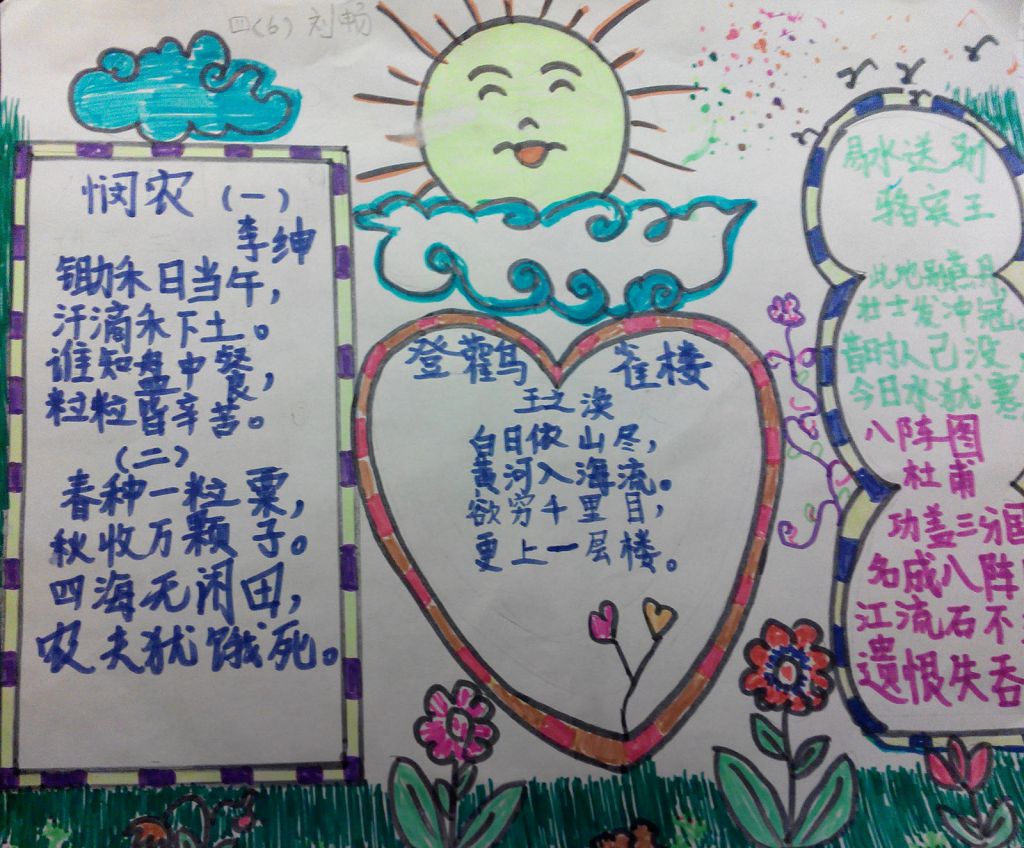 四(6) 刘畅
悯农(一)
李绅
锄禾日当午,
汗滴禾下土。
谁知盘中餐,
粒粒皆辛苦。
(二)
春种一粒粟,
秋收万颗子。
四海无闲田,
农夫犹饿死。
登鹳雀楼
王之涣
白日依山尽,
黄河入海流。
欲穷千里目,
更上一层楼。
易水送别
骆宾王
此地别燕丹
壮士发冲冠。
昔时人已没,
今日水犹寒
八阵图
杜甫
功盖三分国
名成八阵
江流石不
遗恨失吞